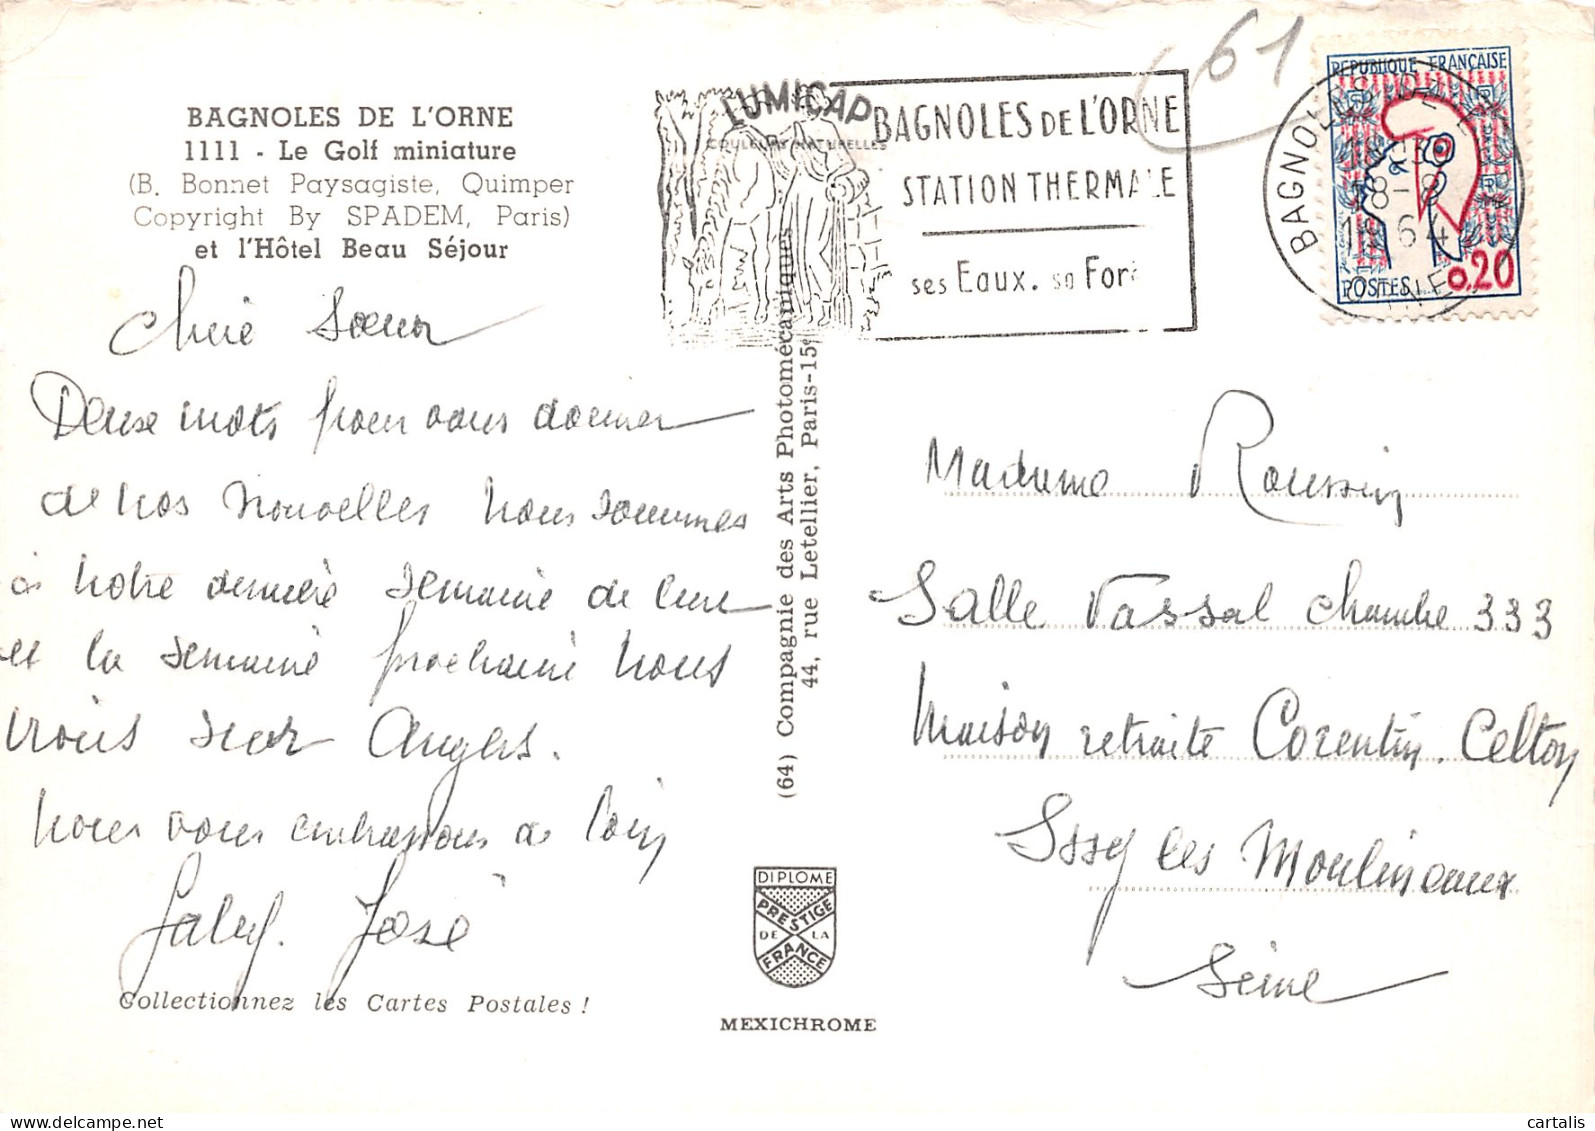 BAGNOLES DE L'ORNE
1111 - Le Golf miniature
(B. Bonnet Paysagiste, Quimper
Copyright By SPADEM, Paris)
et l'Hôtel Beau Séjour
Chère Soeur
Deux mots pour vous donner
de nos nouvelles nous sommes
à notre dernière semaine de cure
et la semaine prochaine nous
irons sur Angers.
nous vous embrassons de loin
José
Collectionnez les Cartes Postales !
LUMICAP
COULEURS NATURELLES
(64) Compagnie des Arts Photomécaniques
44, rue Letellier, Paris-15e
DIPLOME
PRESTIGE
DE LA
FRANCE
MEXICHROME
61
BAGNOLES DE L'ORNE
STATION THERMALE
ses Eaux. sa Forê
BAGNOLES DE L'ORNE
18-8
1964
REPUBLIQUE FRANÇAISE
POSTES 0,20
Madame Roussin
Salle Vassal chambre 333
Maison retraite Corentin. Celton
Issy les Moulineaux
Seine
cartalis